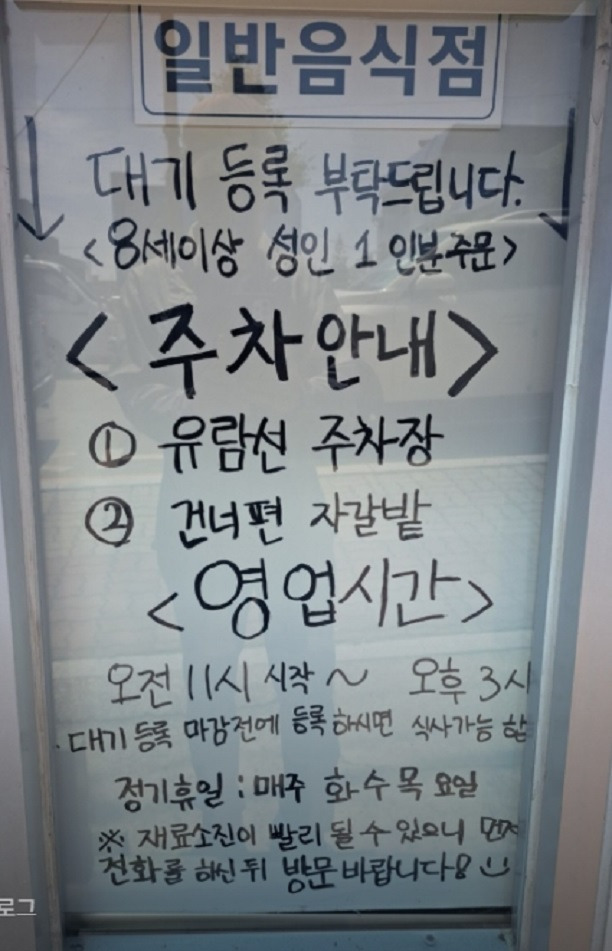 일반음식점
대기 등록 부탁드립니다.
<8세이상 성인 1 인분 주문>
<주차안내>
① 유람선 주차장
② 건너편 자갈밭
<영업시간>
오전 11시 시작 ~ 오후 3시
· 대기 등록 마감전에 등록 하시면 식사가능 합
정기휴일 : 매주 화 수 목 요일
※ 재료소진이 빨리 될 수 있으니 먼저
전화를 하신 뒤 방문 바랍니다
로그